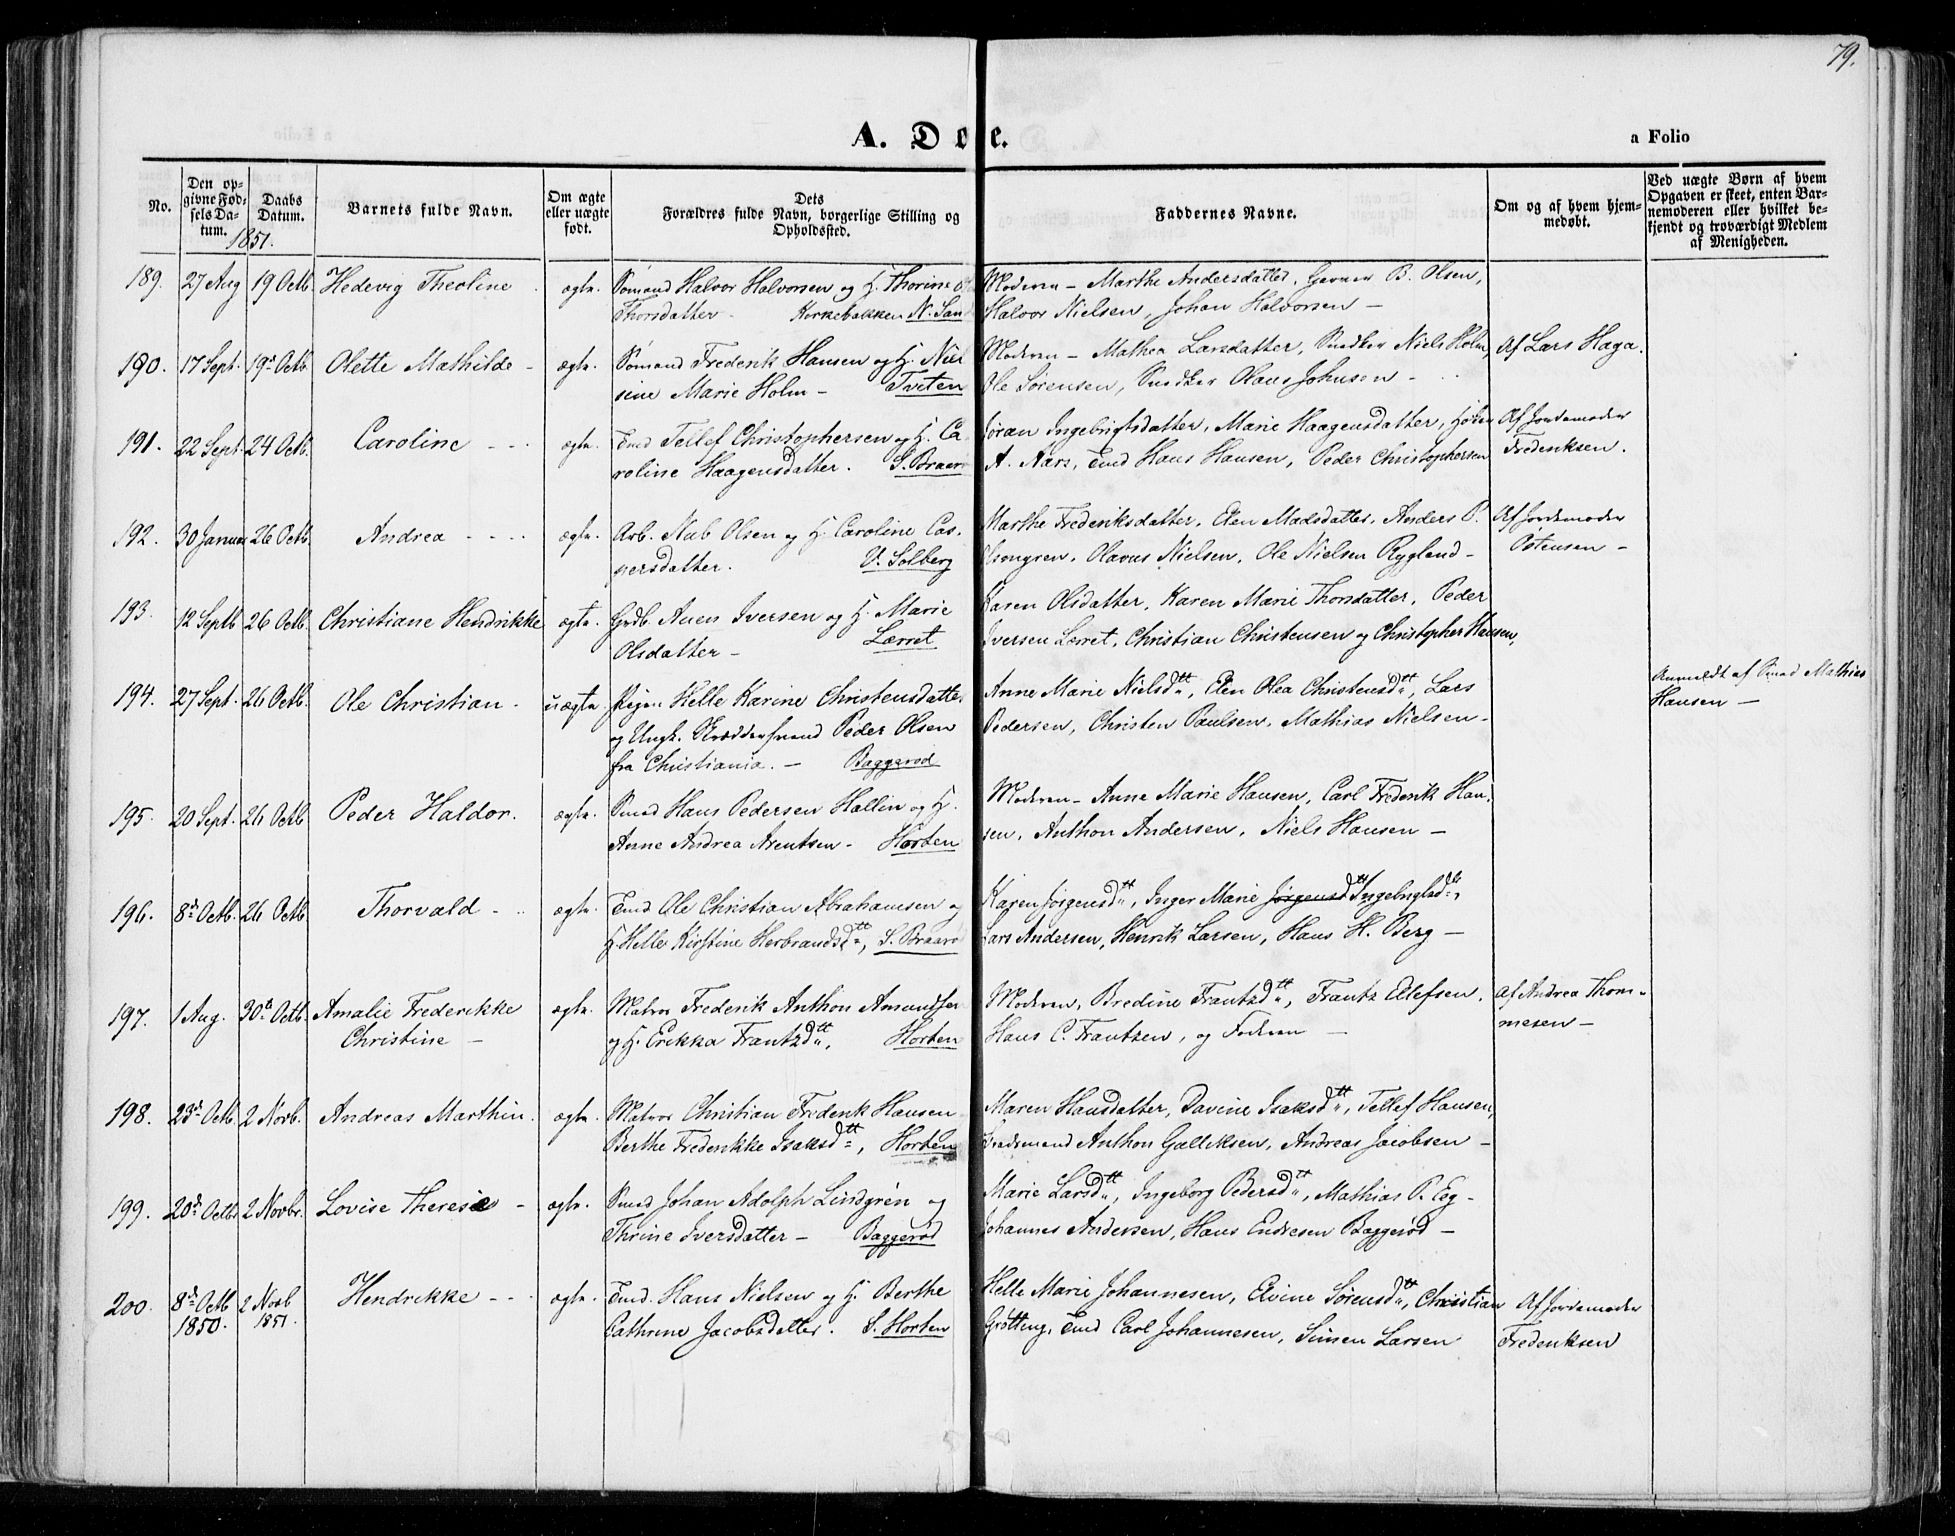 79.
A. Døbte.
a Folio
No.
Den op-
givne Fød-
sels Da-
tum.
Daabs
Datum.
Barnets fulde Navn.
Om ægte
eller uægte
født.
Dets
Forældres fulde Navn, borgerlige Stilling og
Opholdssted.
Faddernes Navne.
Om og af hvem hjem-
medøbt.
Ved uægte Børn af hvem
Opgaven er skeet, enten Bar-
nemoderen eller hvilket be-
kjendt og troværdigt Medlem
af Menigheden.
1851.
189. 27 Aug 19 Octb. Hedevig Theoline ægte. Sømand Halvor Halvorsen og H. Thorine Moderen – Marthe Andersdatter, B. Olsen,
Thorsdatter – Kirkebakken N. San Halvor Nielsen, Johan Halvorsen –
190. 17 Sept. 19de Octb. Olette Mathilde – ægte. Sømand Frederik Hansen og H. Niel Moderen – Mathea Larsdatter, Snedker Niels Holm, Af Lars Haga.
sine Marie Holm – Tveten Ole Sørensen, Snedker Olaus Johnsen –
191. 22 Sept. 24 Octb. Caroline – – ægte. Tmd Tellef Christophersen og H. Ca- Jøran Ingebrigtsdatter, Marie Haagensdatter, Af Jordemoder
roline Haagensdatter. S. Braarø A. Aars, Tmd Hans Hansen, Peder Christophersen Frederiksen.
192. 30 Januar 26 Octb. Andrea – – – – ægte. Arb. Olsen og H. Caroline Cas- Marthe Frederiksdatter, Elen Madsdatter, Anders P. Af Jordemoder
persdatter. V. Solberg Olavus Nielsen, Ole Nielsen Rygland – Ostensen –
193. 12 Septb 26 Octb. Christiane Hendrikke ægte. Grdb. Auen Iversen og H. Marie Karen Olsdatter, Karen Marie Thorsdatter, Peder
Olsdatter – Lerret Iversen Lerret, Christian Christensen og Christopher Hansen,
194. 27 Sept. 26 Octb. Ole Christian – uægte. Pigen Helle Karine Christensdatte. Anne Marie Nielsdtt, Elen Olea Christensdtt, Lars Anmeldt af Smed Mathias
og Ungk. Skræddersvend Peder Olsen Pedersen, Christen Paulsen, Mathias Nielsen – Hansen –
fra Christiania. – Baggerød
195. 20 Sept. 26 Octb Peder Haldor. ægte. Smed Hans Pedersen Hallin og H. Moderen – Anne Marie Hansen, Carl Frederik Han-
Anne Andrea Arentsen – Horten sen, Anthon Andersen, Niels Hansen –
196. 8de Octb. 26 Octb Thorvald – ægte. Tmd Ole Christian Abrahamsen og Karen Jørgensdtt, Inger Marie Jørgensd Ingebrigtsdtt,
H. Helle Kirstine Herbrandsdtt, S. Braarø Lars Andersen, Henrik Larsen, Hans H. Berg –
197. 1 Aug. 30te Octb. Amalie Frederikke ægte. Matros Frederik Anthon Amundsen Moderen, Bredine Frantzdtt, Frantz Ellefsen, Af Andrea Thom-
Christine – og H. Erikka Frantzdtt, Horten Hans C. Frantzen, og Faderen – mesen –
198. 23de Octb. 2 Novb. Andreas Marthin. ægte. Matros Christian Frederik Hansen Maren Hansdatter, Davine Isaksdtt, Tellef Hansen,
Berthe Frederikke Isaksdtt, Horten Anthon Gulliksen, Andreas Jacobsen –
199. 20de Octb 2 Novbr. Lovise Therese – ægte. Smed Johan Adolph Lindgrén og Marie Larsdtt, Ingeborg Pedersdtt, Mathias P. Eeg –
Thrine Iversdatter – Baggerød Johannes Andersen, Hans Endresen Baggerød –
200. 8de Octb 2 Novb Hendrikke – – ægte. Tmd. Hans Nielsen og H. Berthe Helle Marie Johannesen, Elvine Sørensdtt, Christian Af Jordemoder
1850. 1851. Cathrine Jacobsdatter. S. Horten Grøtting, Tmd Carl Johannesen, Simen Larsen Frederiksen